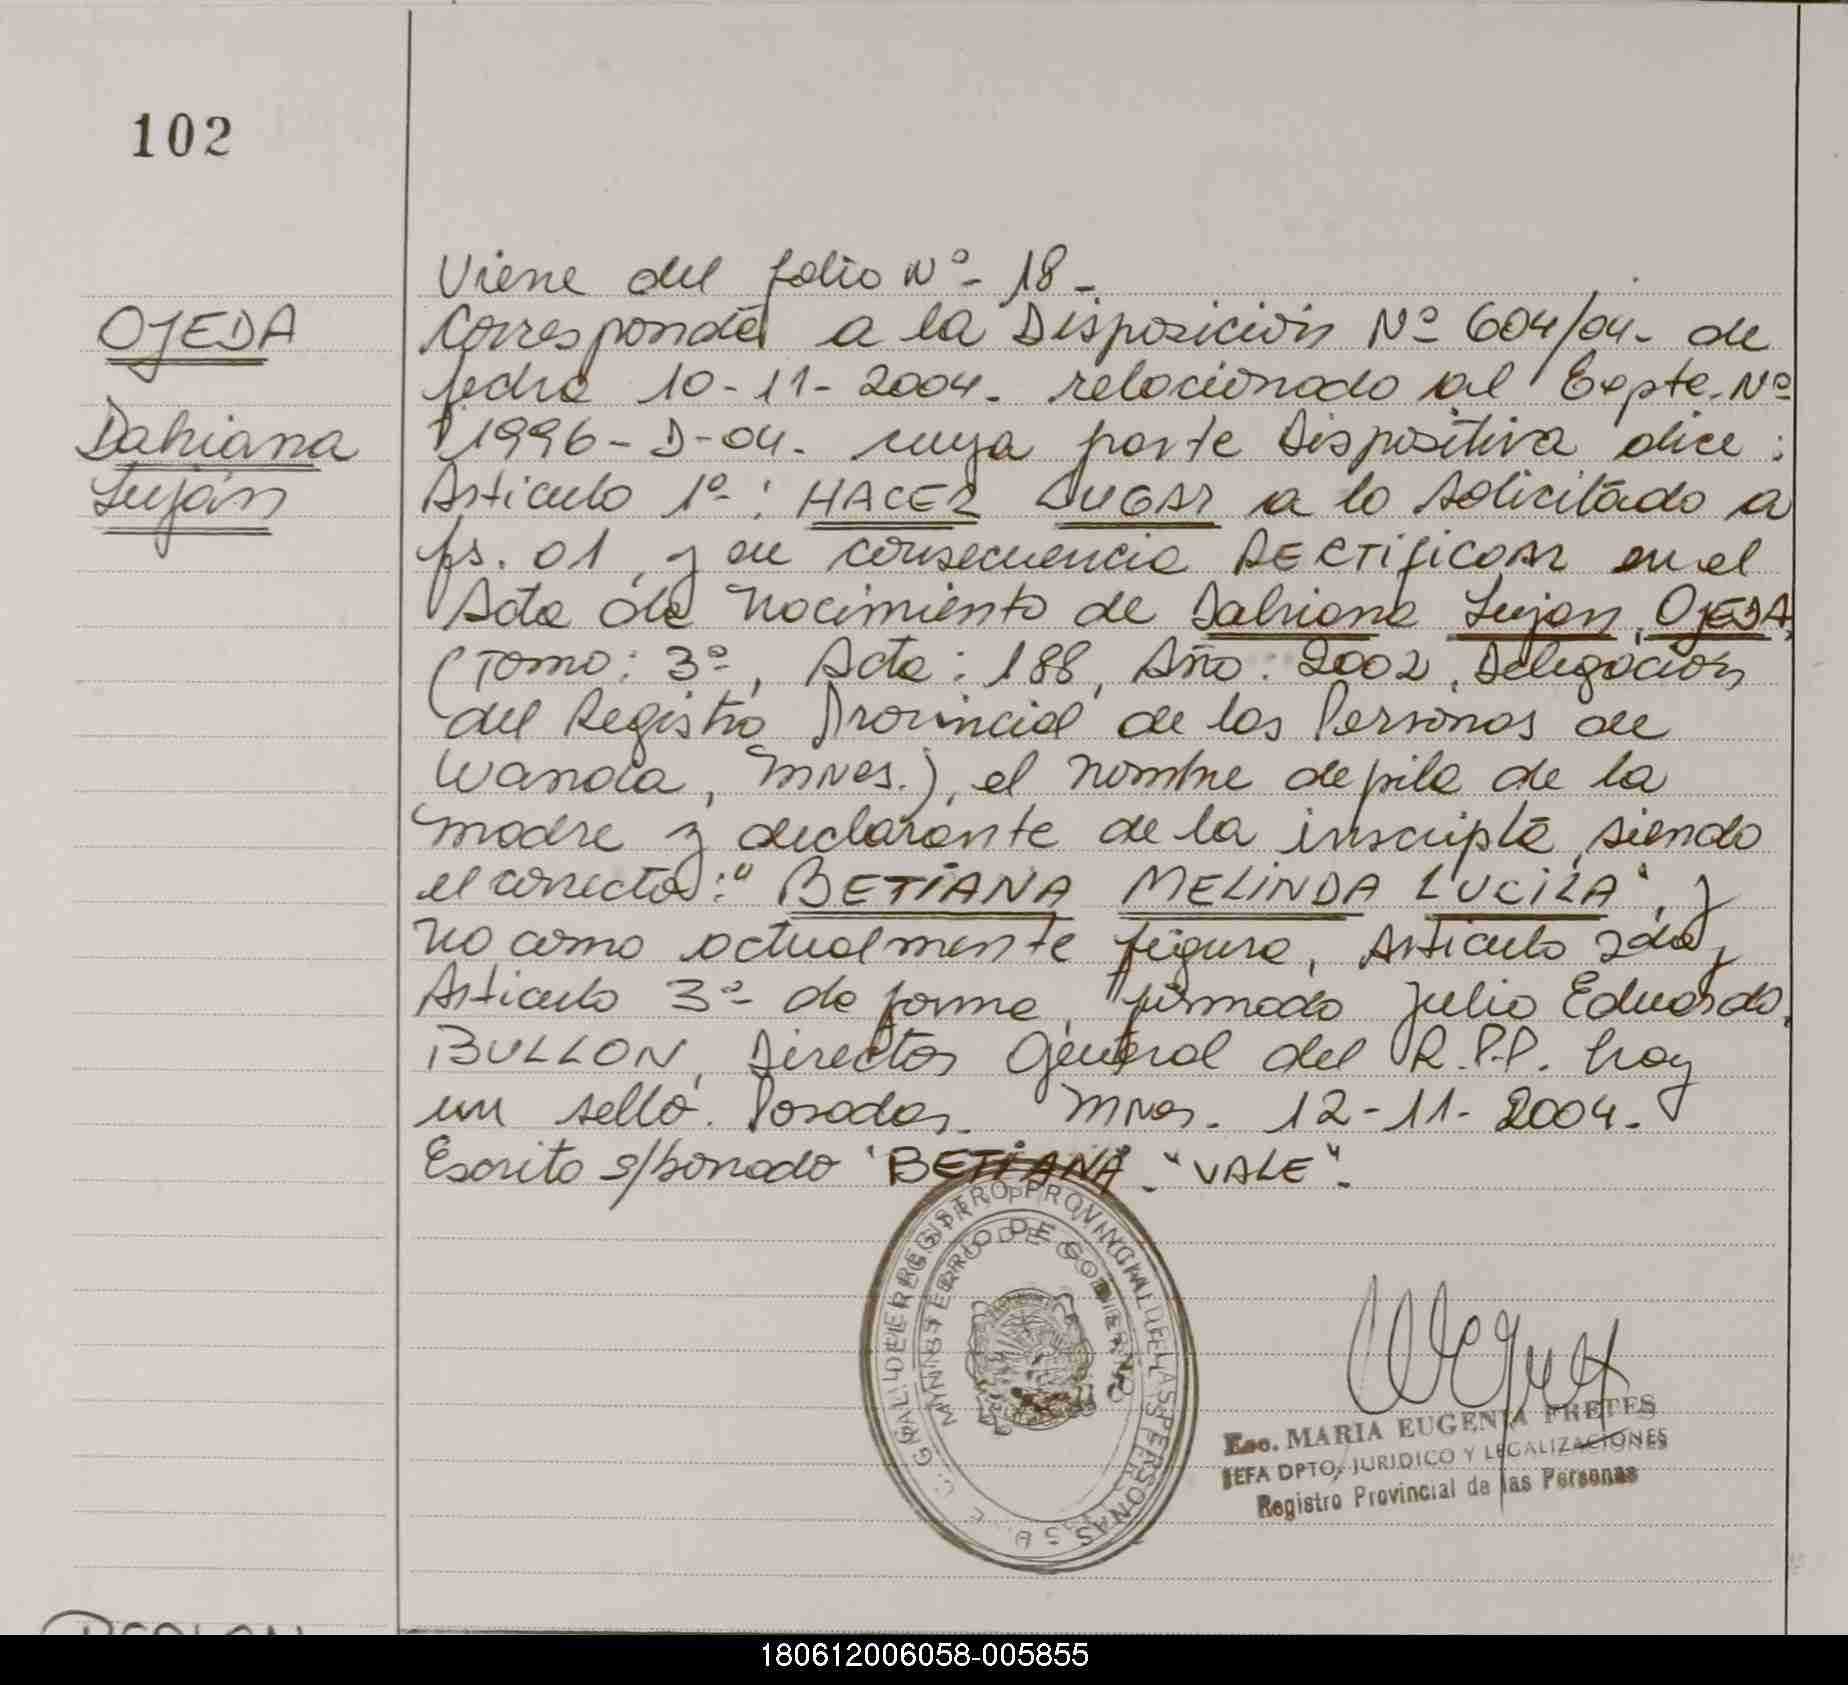 102
OJEDA
Dahiana
Luján
Viene del folio Nº- 18-
Corresponde a la Disposición Nº 604/04- de
fecha 10-11-2004. relacionado al Expte. Nº
1996-D-04. cuya parte Dispositiva dice:
Articulo 1º-: HACER LUGAR a lo solicitado a
fs. 01, y en consecuencia RECTIFICAR en el
Acta de Nacimiento de Dahiana Lujan, OJEDA,
(Tomo: 3º, Acta: 188, Año: 2002, Delegación
del Registro Provincial de las Personas de
Wanda, Mnes.), el nombre de pila de la
madre y declarante de la inscripta, siendo
el correcto: "BETIANA MELINDA LUCILA", y
no como actualmente figura, Articulo 2do y
Articulo 3º- de forma, firmado Julio Eduardo,
BULLON, Director General del R.P.P. hay
un sello. Posadas. Mnes. 12-11-2004.
Escrito s/borrado "BETIANA"- "VALE"-
REGISTRO PROVINCIAL DE LAS PERSONAS
MINISTERIO DE GOBIERNO
Esc. MARIA EUGENIA FRETES
JEFA DPTO. JURIDICO Y LEGALIZACIONES
Registro Provincial de las Personas
180612006058-005855